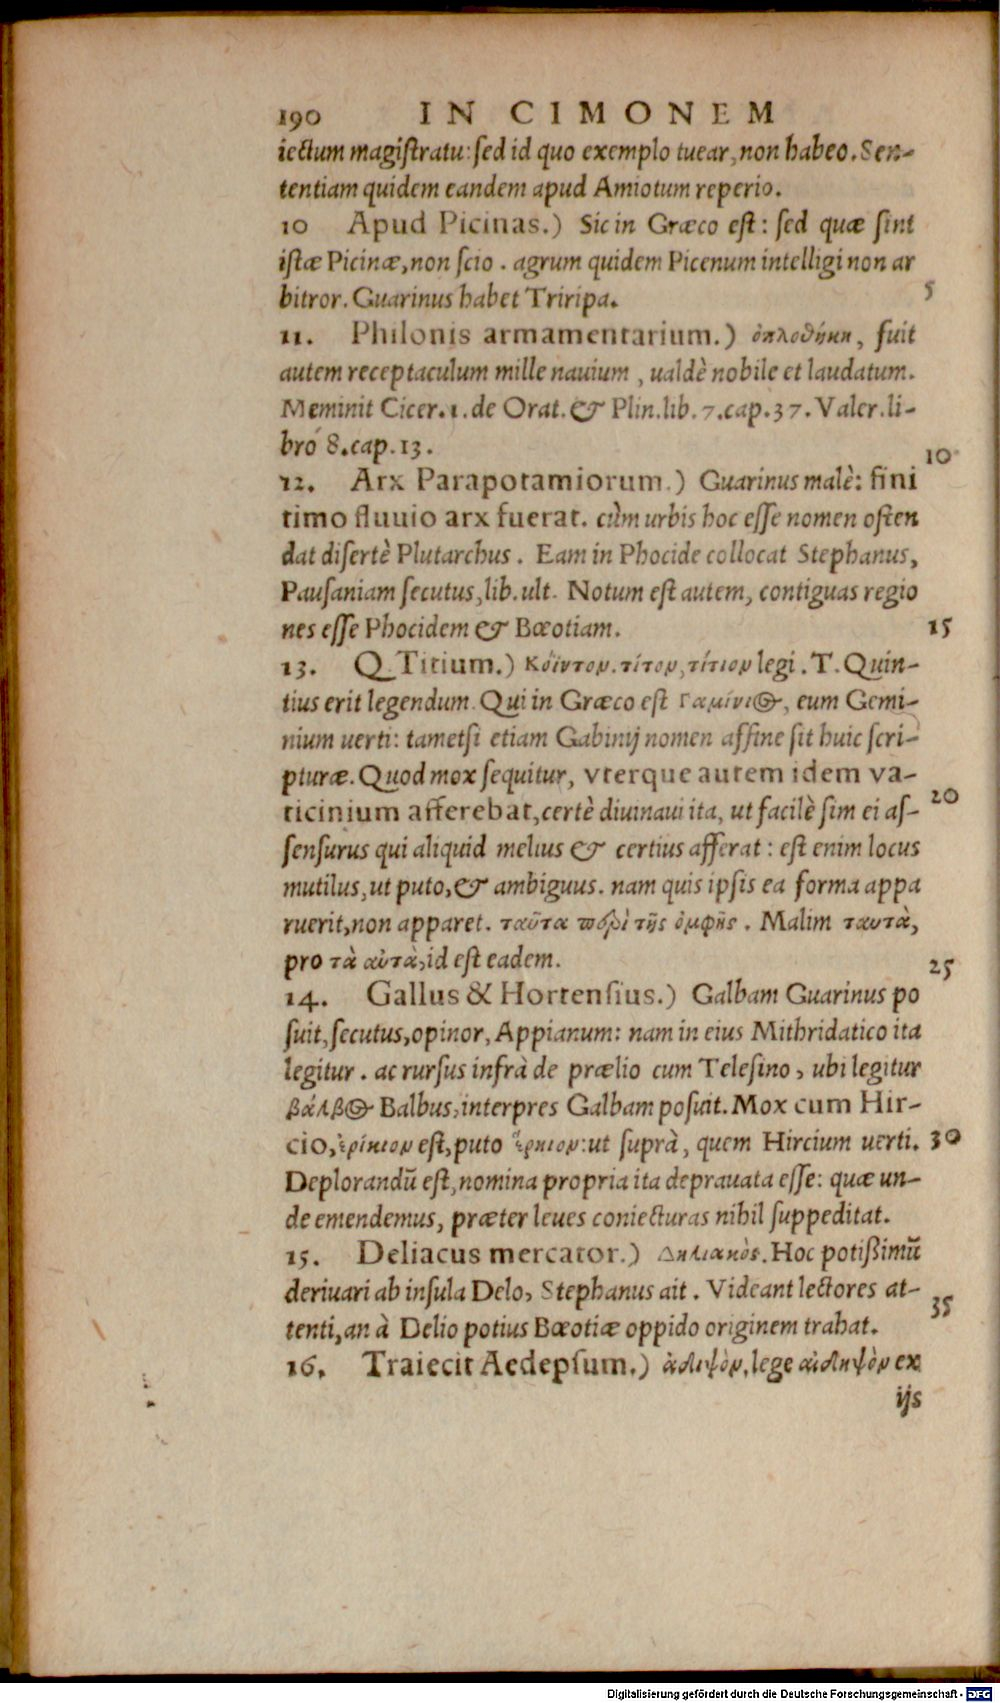 190 IN CIMONEM
iectum magiſtratu: ſed id quo exemplo tuear, non habeo. Sen-
tentiam quidem eandem apud Amiotum reperio.
10 Apud Picinas.) Sic in Græco eſt: ſed quæ ſint
iſtæ Picinæ, non ſcio. agrum quidem Picenum intelligi non ar
bitror. Guarinus habet Triripa. 5
11. Philonis armamentarium.) ὁπλοθήκη, fuit
autem receptaculum mille nauium, ualdè nobile et laudatum.
Meminit Cicer. 1. de Orat. & Plin. lib. 7. cap. 37. Valer. li-
bro 8. cap. 13. 10
12. Arx Parapotamiorum.) Guarinus malè: fini
timo fluuio arx fuerat. cùm urbis hoc eſſe nomen oſten
dat diſertè Plutarchus. Eam in Phocide collocat Stephanus,
Pauſaniam ſecutus, lib. ult. Notum eſt autem, contiguas regio
nes eſſe Phocidem & Bœotiam. 15
13. Q. Titium.) Κόϊντον. τίτον, τίτιον legi. T. Quin-
tius erit legendum. Qui in Græco eſt Γαμίνιος, eum Gemi-
nium uerti: tametſi etiam Gabinij nomen affine ſit huic ſcri-
pturæ. Quod mox ſequitur, vterque autem idem va-
ticinium afferebat, certè diuinaui ita, ut facilè ſim ei aſ- 20
ſenſurus qui aliquid melius & certius afferat: eſt enim locus
mutilus, ut puto, & ambiguus. nam quis ipſis ea forma appa
ruerit, non apparet. ταῦτα περὶ τῆς ὀμφῆς. Malim ταυτὰ,
pro τὰ αὐτὰ, id eſt eadem.
14. Gallus & Hortenſius.) Galbam Guarinus po 25
ſuit, ſecutus, opinor, Appianum: nam in eius Mithridatico ita
legitur. ac rurſus infrà de prælio cum Teleſino, ubi legitur
βάλβος Balbus, interpres Galbam poſuit. Mox cum Hir-
cio, ἑρίκιον eſt, puto ἕρκιον: ut ſuprà, quem Hircium uerti. 30
Deplorandū eſt, nomina propria ita deprauata eſſe: quæ un-
de emendemus, præter leues coniecturas nihil ſuppeditat.
15. Deliacus mercator.) Δηλιακὸς. Hoc potißimū
deriuari ab inſula Delo, Stephanus ait. Videant lectores at-
tenti, an à Delio potius Bœotiæ oppido originem trahat. 35
16. Traiecit Aedepſum.) ἀδιψὸν, lege αἰδηψὸν ex
ijs
Digitalisierung gefördert durch die Deutsche Forschungsgemeinschaft - DFG